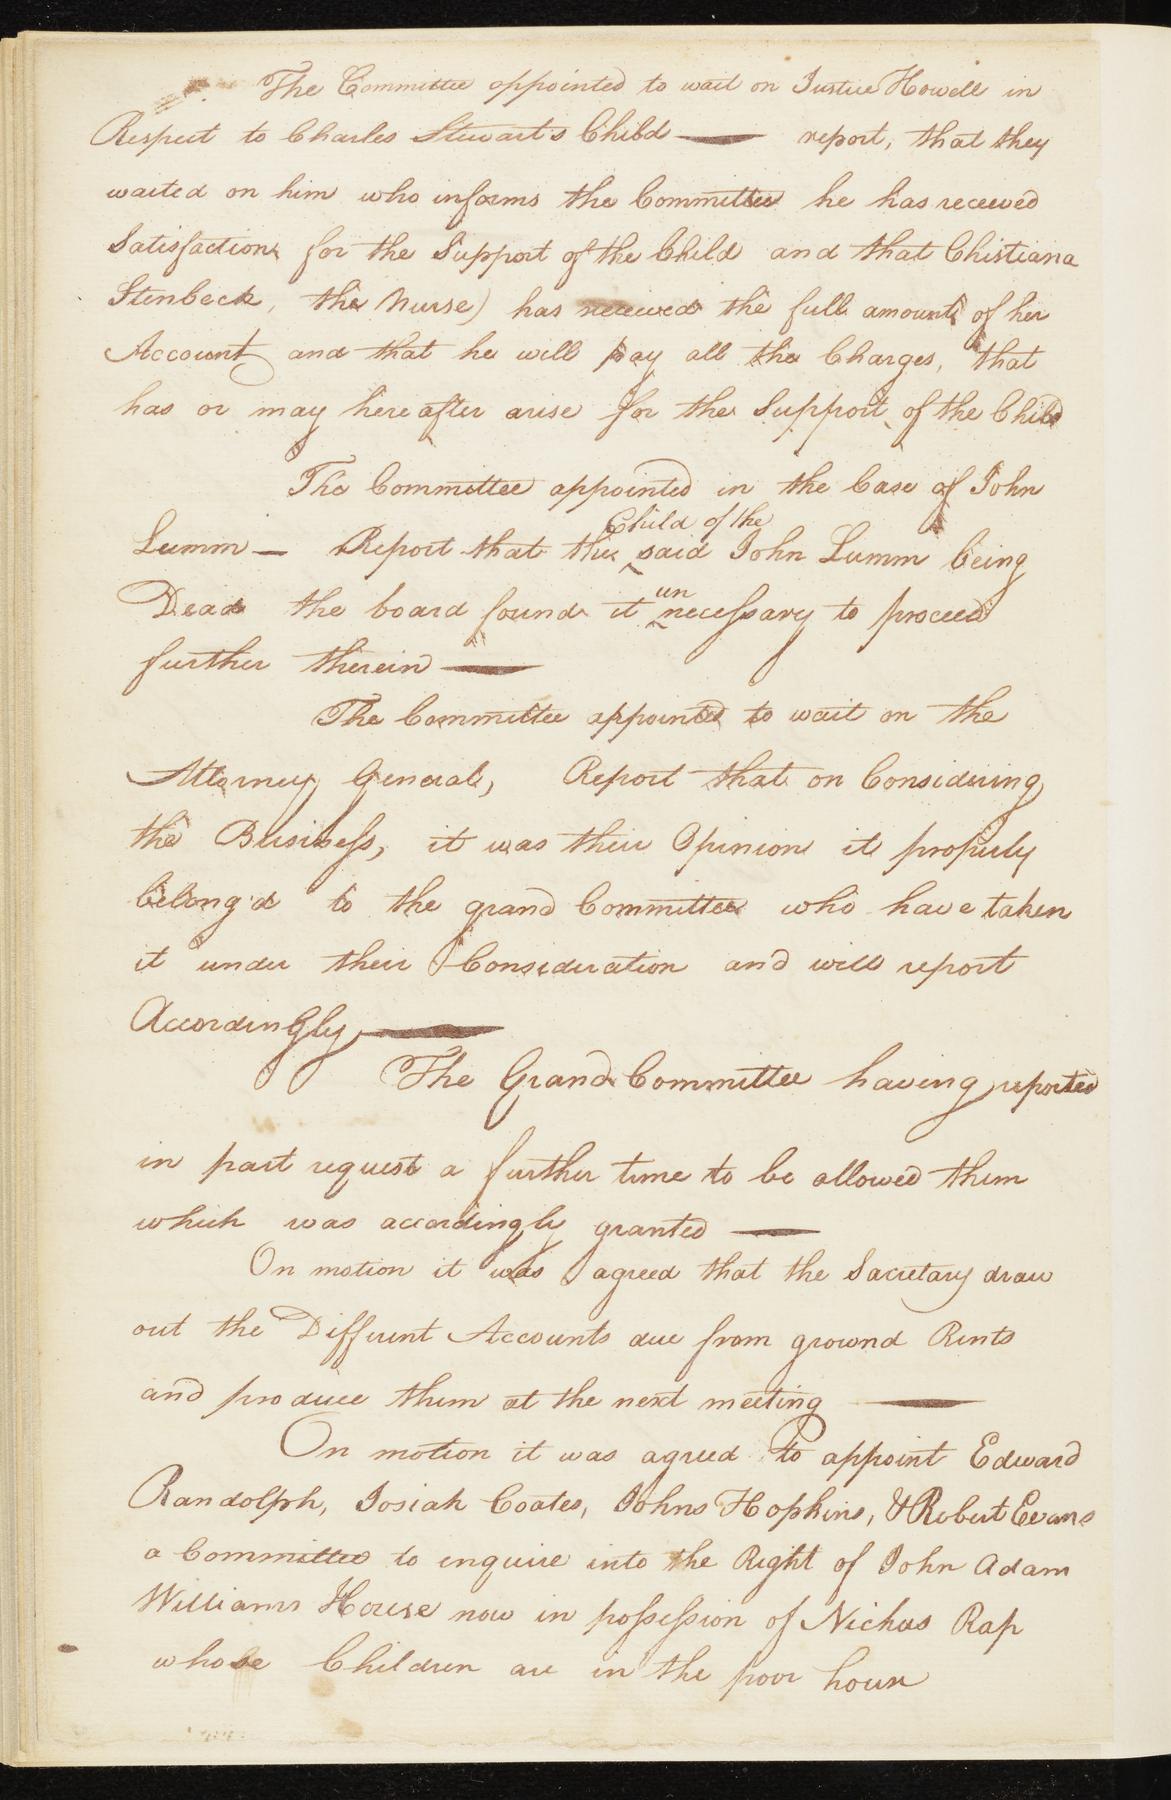 The Committee appointed to wait on Justice Howell in
Respect to Charles Stewart's Child — report, that they
waited on him who informs the Committee he has received
Satisfaction for the Support of the Child and that Chistiana
Stenbeck, the Nurse) has received the full amount of her
Account and that he will pay all the Charges, that
has or may hereafter arise for the Support of the Child
The Committee appointed in the Case of John
Child of the
Lumm — Report that the ‸ said John Lumm being
un
Dead the board found it ‸ necessary to proceed
further therein —
The Committee appointed to wait on the
Attorney General, Report that on Considering
the Business, it was their Opinion it properly
belong'd to the grand Committee who have taken
it under their Consideration and will report
Accordingly —
The Grand Committee having reported
in part request a further time to be allowed them
which was accordingly granted —
On motion it was agreed that the Sacretary draw
out the Diffrent Accounts due from ground Rents
and produce them at the next meeting —
On motion it was agreed to appoint Edward
Randolph, Josiah Coates, Johns Hopkins, & Robert Evans
a Committee to enquire into the Right of John Adam
Williams House now in possession of Nichus Rap
whose Children are in the poor house